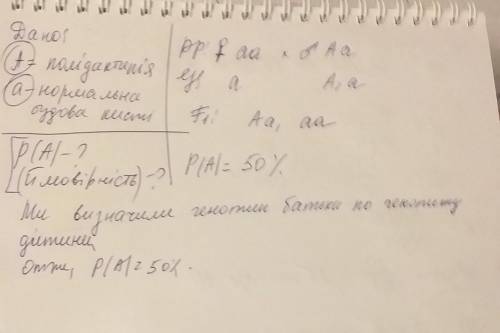 Дано:
A - полідактилія
a - нормальна
будова кисті
P(A) - ?
(Ймовірність) - ?
PP: ♀ aa × ♂ Aa
G: a A, a
F₁: Aa, aa
P(A) = 50%
Ми визначили генотип батька по генотипу
дитини
Отже, P(A) = 50%.